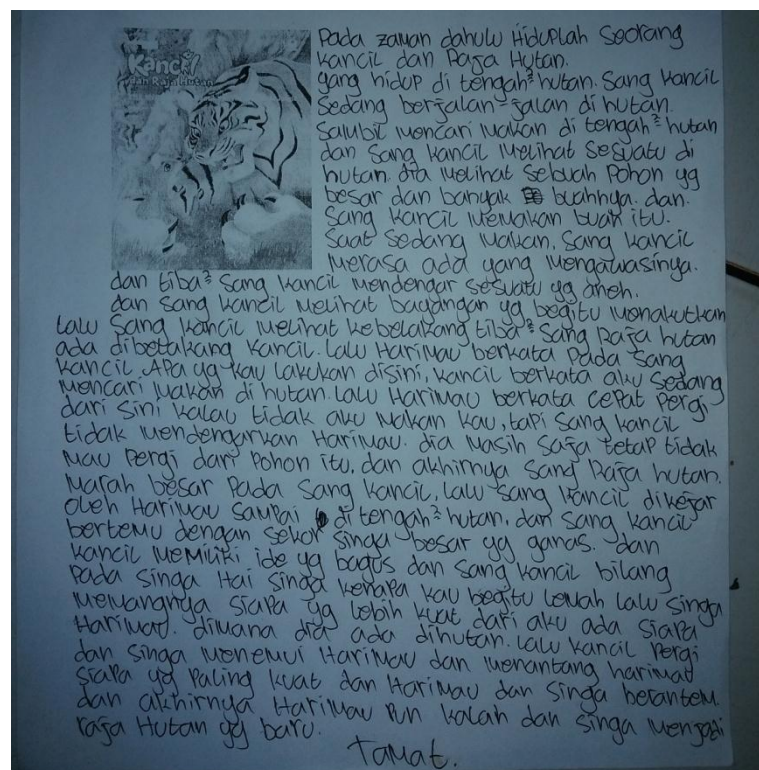 Kancil
dan Raja Hutan
Pada zaman dahulu Hiduplah Seorang
kancil dan Raja Hutan.
yang hidup di tengah² hutan. Sang Kancil
Sedang berjalan-jalan di hutan.
Salubil mencari makan di tengah² hutan
dan Sang Kancil Melihat Sesuatu di
hutan. dia Melihat Sebuah Pohon yg
besar dan banyak buahnya. dan.
Sang Kancil Memakan buah itu.
Saat Sedang Makan, Sang kancil
Merasa ada yang Mengawasinya.
dan tiba² Sang kancil Mendengar Sesuatu yg aneh.
dan Sang kancil Melihat bayangan yg begitu Menakutkan
Lalu Sang Kancil Melihat kebelakang tiba² Sang Raja hutan
ada dibelakang Kancil. Lalu HariMau berkata Pada Sang
Kancil. APa yg kau Lakukan disini, kancil berkata aku Sedang
Mencari Makan di hutan. Lalu HariMau berkata CePat Pergi
dari Sini kalau tidak aku Makan kau, taPi Sang kancil
tidak Mendengarkan HariMau. dia Masih Saja tetaP tidak
Mau Pergi dari Pohon itu, dan akhirnya Sang Raja hutan.
Marah besar Pada Sang kancil, Lalu Sang Kancil dikejar
oleh HariMau SamPai di tengah² hutan. dan Sang Kancil
bertemu dengan Sekor Singa besar yg ganas. dan
kancil Memiliki ide yg bagus dan Sang Kancil bilang
Pada Singa Hai Singa kenaPa kau begitu Lemah Lalu Singa
Memangnya SiaPa yg Lebih kuat dari aku ada SiaPa
HariMau. dimana dia ada dihutan. Lalu Kancil Pergi
dan Singa Menemui HariMau dan Menantang hariMau
SiaPa yg Paling kuat dan HariMau dan Singa berantem.
dan akhirnya HariMau Pun kalah dan Singa Menjadi
raja Hutan yg baru.
TaMat.